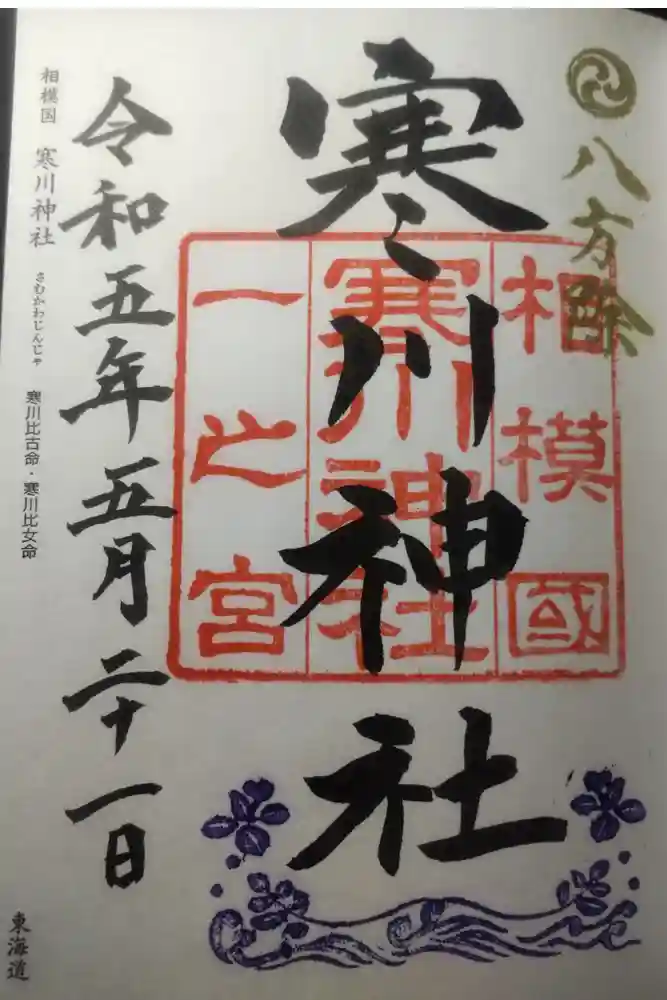 八方除
寒川神社
相模國
寒川神社
一之宮
令和五年五月二十一日
相模国 寒川神社 さむかわじんじゃ 寒川比古命・寒川比女命
東海道